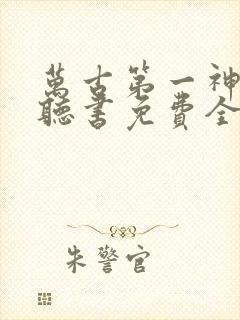 萬古第一神
聽書免費全
朱警官